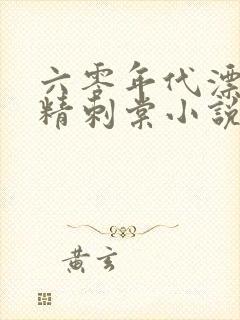 六零年代漂
精刺棠小説
黄玄